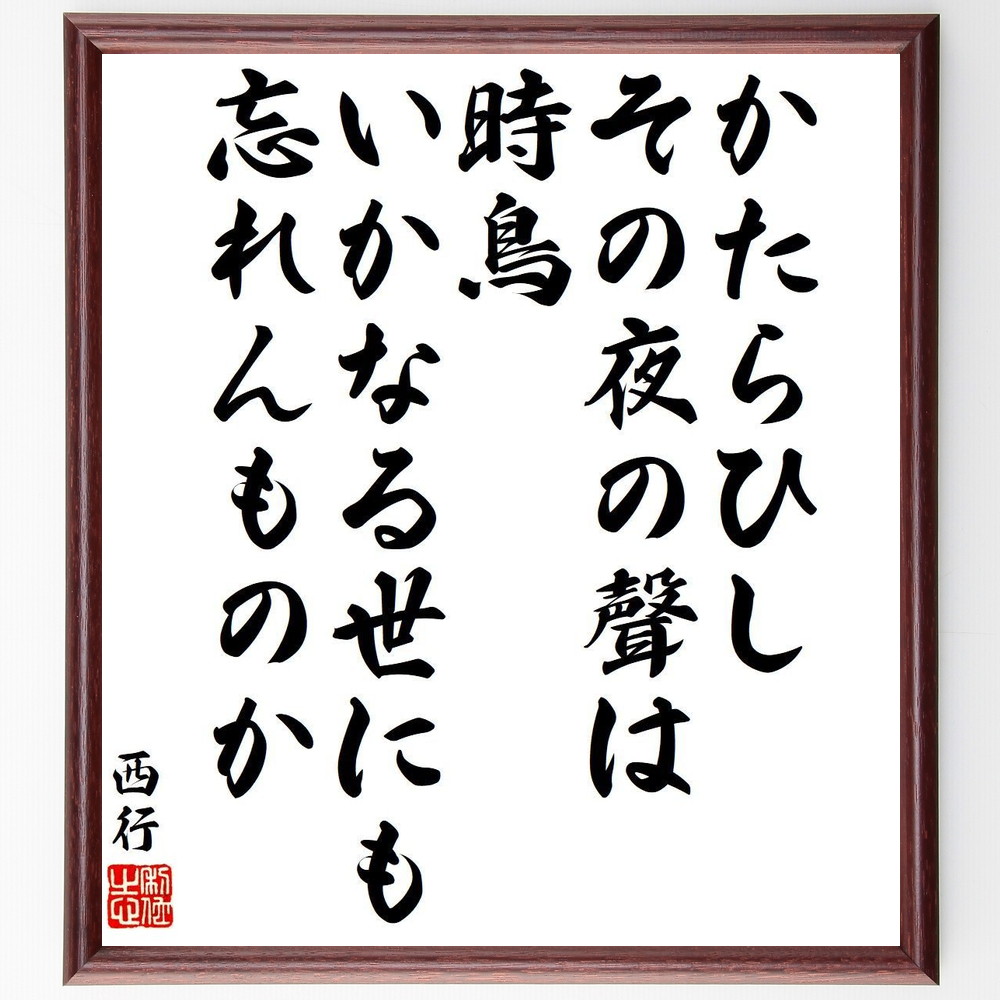 かたらひし
その夜の聲は
時鳥
いかなる世にも
忘れんものか
西行